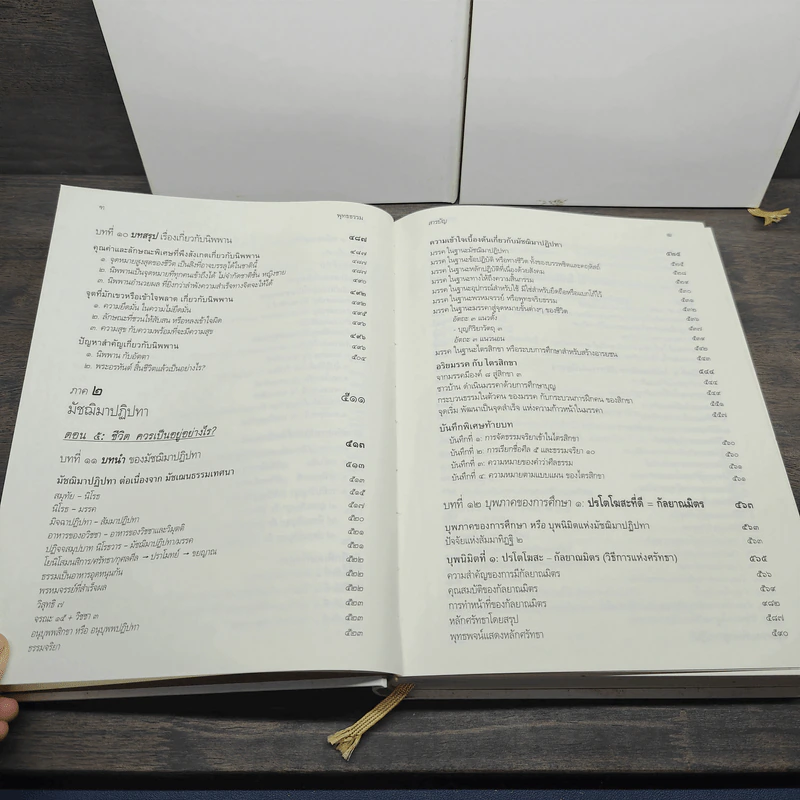 พุทธธรรม
บทที่ ๑๐ บทสรุป เรื่องเกี่ยวกับนิพพาน ๔๘๗
คุณค่าและลักษณะพิเศษที่พึงสังเกตเกี่ยวกับนิพพาน ๔๘๗
๑. จุดหมายสูงสุดของชีวิต เป็นสิ่งที่อาจบรรลุได้ในชาตินี้ ๔๘๗
๒. นิพพานเป็นจุดหมายที่ทุกคนเข้าถึงได้ ไม่จำกัดชาติชั้น หญิงชาย ๔๘๗
๓. นิพพานอำนวยผล ที่ยิ่งกว่าลำพังความสำเร็จทางจิตจะให้ได้ ๔๙๐
จุดที่มักเขวหรือเข้าใจพลาด เกี่ยวกับนิพพาน ๔๙๒
๑. ความยึดมั่น ในความไม่ยึดมั่น ๔๙๒
๒. ลักษณะที่ชวนให้สับสน หรือหลงเข้าใจผิด ๔๙๕
๓. ความสุข กับความพร้อมที่จะมีความสุข ๔๙๖
ปัญหาสำคัญเกี่ยวกับนิพพาน ๔๙๖
๑. นิพพาน กับอัตตา ๔๙๖
๒. พระอรหันต์ สิ้นชีวิตแล้วเป็นอย่างไร? ๕๐๔
ภาค ๒
มัชฌิมาปฏิปทา ๕๑๑
ตอน ๕: ชีวิต ควรเป็นอยู่อย่างไร? ๕๑๓
บทที่ ๑๑ บทนำ ของมัชฌิมาปฏิปทา ๕๑๓
มัชฌิมาปฏิปทา ต่อเนื่องจาก มัชเฌนธรรมเทศนา ๕๑๓
สมุทัย – นิโรธ ๕๑๕
นิโรธ – มรรค ๕๑๗
มิจฉาปฏิปทา – สัมมาปฏิปทา ๕๒๐
อาหารของอวิชชา – อาหารของวิชชาและวิมุตติ ๕๒๑
ปฏิจจสมุปบาท นิโรธวาร – มัชฌิมาปฏิปทา/มรรค ๕๒๑
โยนิโสมนสิการ/ศรัทธา/กุศลศีล → ปราโมทย์ → ขยญาณ ๕๒๒
ธรรมเป็นอาหารอุดหนุนกัน ๕๒๒
พรหมจรรย์ที่สำเร็จผล ๕๒๒
วิสุทธิ ๗ ๕๒๓
จรณะ ๑๕ + วิชชา ๓ ๕๒๓
อนุบุพพสิกขา หรือ อนุบุพพปฏิปทา ๕๒๓
ธรรมจริยา
สารบัญ
ความเข้าใจเบื้องต้นเกี่ยวกับมัชฌิมาปฏิปทา
มรรค ในฐานะมัชฌิมาปฏิปทา
มรรค ในฐานะข้อปฏิบัติ หรือทางชีวิต ทั้งของบรรพชิตและคฤหัสถ์
มรรค ในฐานะหลักปฏิบัติที่เนื่องด้วยสังคม
มรรค ในฐานะทางให้ถึงความสิ้นกรรม
มรรค ในฐานะอุปกรณ์สำหรับใช้ มิใช่สำหรับยึดถือหรือแบกไว้โก้
มรรค ในฐานะพรหมจรรย์ หรือพุทธจริยธรรม
มรรค ในฐานะมรรคาสู่จุดหมายขั้นต่างๆ ของชีวิต
อัตถะ ๓ แนวตั้ง
- บุญกิริยาวัตถุ ๓ ๕๓๗
อัตถะ ๓ แนวนอน
มรรค ในฐานะไตรสิกขา หรือระบบการศึกษาสำหรับสร้างอารยชน
อริยมรรค กับ ไตรสิกขา ๕๔๔
จากมรรคมีองค์ ๘ สู่สิกขา ๓ ๕๔๔
ชาวบ้าน ดำเนินมรรคาด้วยการศึกษาบุญ ๕๔๙
กระบวนธรรมในตัวคน ของมรรค กับกระบวนการฝึกคน ของสิกขา ๕๕๑
จุดเริ่ม พัฒนาเป็นจุดสำเร็จ แห่งความก้าวหน้าในมรรคา ๕๕๗
บันทึกพิเศษท้ายบท
บันทึกที่ ๑: การจัดธรรมจริยาเข้าในไตรสิกขา ๕๖๐
บันทึกที่ ๒: การเรียกชื่อศีล ๕ และธรรมจริยา ๑๐ ๕๖๐
บันทึกที่ ๓: ความหมายของคำว่าศีลธรรม ๕๖๑
บันทึกที่ ๔: ความหมายตามแบบแผน ของไตรสิกขา ๕๖๑
บทที่ ๑๒ บุพภาคของการศึกษา ๑: ปรโตโฆสะที่ดี = กัลยาณมิตร ๕๖๓
บุพภาคของการศึกษา หรือ บุพนิมิตแห่งมัชฌิมาปฏิปทา ๕๖๓
ปัจจัยแห่งสัมมาทิฏฐิ ๒ ๕๖๓
บุพนิมิตที่ ๑: ปรโตโฆสะ – กัลยาณมิตร (วิธีการแห่งศรัทธา) ๕๖๕
ความสำคัญของการมีกัลยาณมิตร ๕๖๖
คุณสมบัติของกัลยาณมิตร ๕๖๙
การทำหน้าที่ของกัลยาณมิตร
หลักศรัทธาโดยสรุป ๕๘๗
พุทธพจน์แสดงหลักศรัทธา ๕๙๐